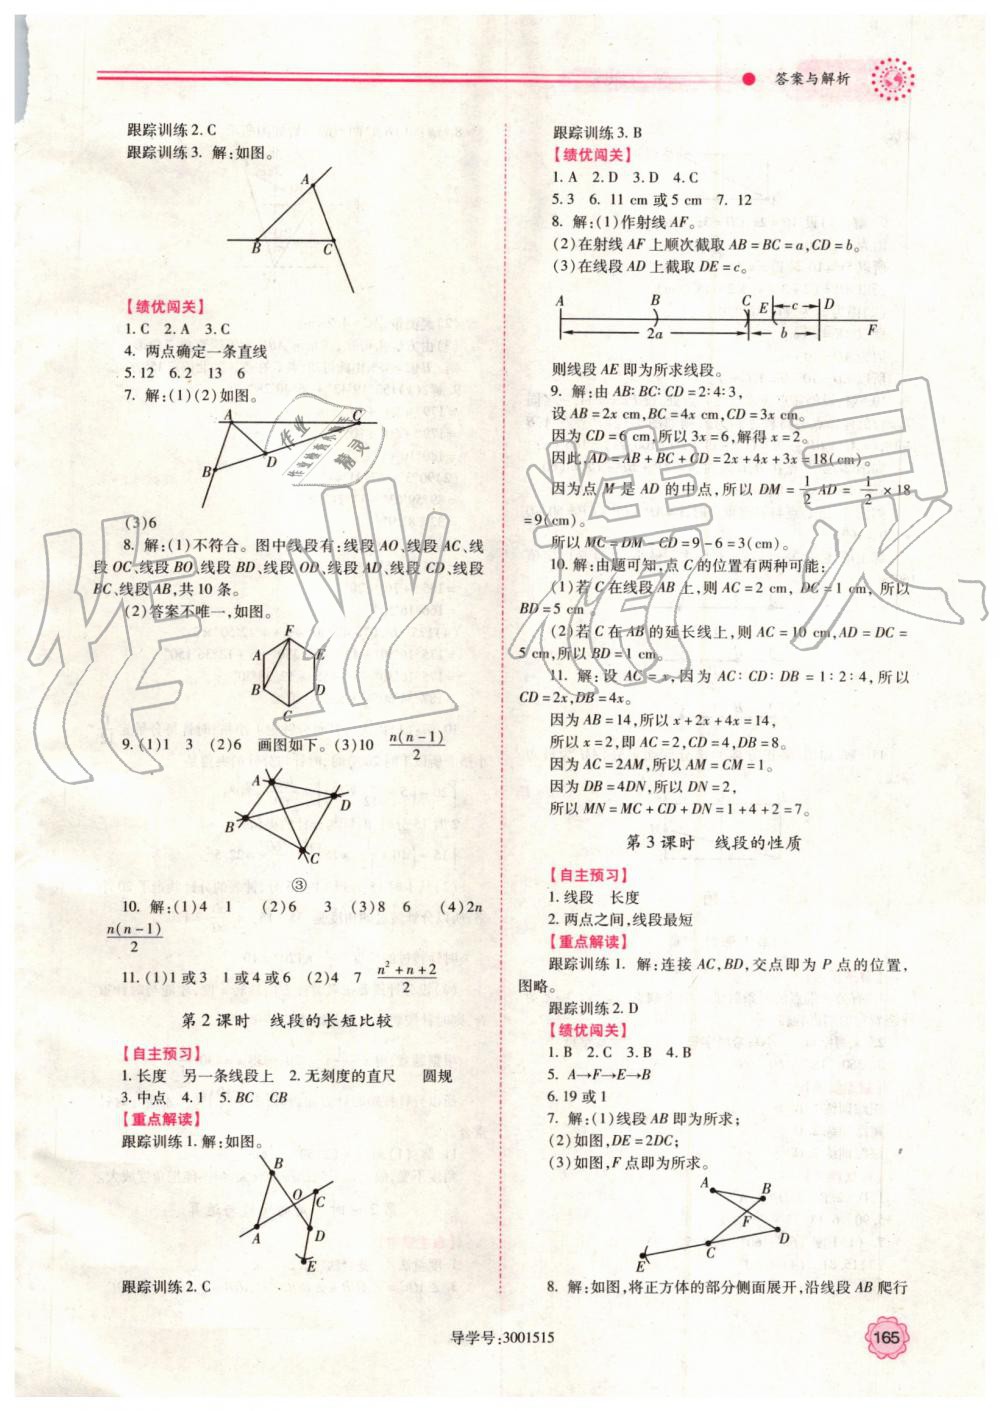 答案与解析
跟踪训练2. C
跟踪训练3. 解:如图。
A
B
C
【绩优闯关】
1. C 2. A 3. C
4. 两点确定一条直线
5. 12 6. 2 13 6
7. 解:(1)(2)如图。
A
C
D
B
(3)6
8. 解:(1)不符合。图中线段有:线段 AO、线段 AC、线
段 OC、线段 BO、线段 BD、线段 OD、线段 AD、线段 CD、线段
BC、线段 AB,共 10 条。
(2)答案不唯一,如图。
F
A
E
B
D
C
9. (1)1 3 (2)6 画图如下。(3)10 n(n−1)/2
A
D
B
C
③
10. 解:(1)4 1 (2)6 3 (3)8 6 (4)2n
n(n−1)/2
11. (1)1 或 3 1 或 4 或 6 (2)4 7 n²+n+2/2
第 2 课时 线段的长短比较
【自主预习】
1. 长度 另一条线段上 2. 无刻度的直尺 圆规
3. 中点 4. 1 5. BC CB
【重点解读】
跟踪训练1. 解:如图。
B
O
C
A
D
E
跟踪训练2. C
跟踪训练3. B
【绩优闯关】
1. A 2. D 3. D 4. C
5. 3 6. 11 cm 或 5 cm 7. 12
8. 解:(1)作射线 AF。
(2)在射线 AF 上顺次截取 AB=BC=a,CD=b。
(3)在线段 AD 上截取 DE=c。
A B C E c D
2a b F
则线段 AE 即为所求线段。
9. 解:由 AB:BC:CD=2:4:3,
设 AB=2x cm,BC=4x cm,CD=3x cm。
因为 CD=6 cm,所以 3x=6,解得 x=2。
因此,AD=AB+BC+CD=2x+4x+3x=18(cm)。
因为点 M 是 AD 的中点,所以 DM=1/2 AD=1/2×18
=9(cm)。
所以 MC=DM−CD=9−6=3(cm)。
10. 解:由题可知,点 C 的位置有两种可能:
(1)若 C 在线段 AB 上,则 AC=2 cm, DC=1 cm, 所以
BD=5 cm。
(2)若 C 在 AB 的延长线上,则 AC=10 cm,AD=DC=
5 cm,所以 BD=1 cm。
11. 解:设 AC=x,因为 AC:CD:DB=1:2:4,所以
CD=2x,DB=4x。
因为 AB=14,所以 x+2x+4x=14,
所以 x=2,即 AC=2,CD=4,DB=8。
因为 AC=2AM,所以 AM=CM=1。
因为 DB=4DN,所以 DN=2,
所以 MN=MC+CD+DN=1+4+2=7。
第 3 课时 线段的性质
【自主预习】
1. 线段 长度
2. 两点之间,线段最短
【重点解读】
跟踪训练1. 解:连接 AC,BD,交点即为 P 点的位置,
图略。
跟踪训练2. D
【绩优闯关】
1. B 2. C 3. B 4. B
5. A→F→E→B
6. 19 或 1
7. 解:(1)线段 AB 即为所求;
(2)如图,DE=2DC;
(3)如图,F 点即为所求。
A
B
F
D
C
E
8. 解:如图,将正方体的部分侧面展开,沿线段 AB 爬行
导学号:3001515
165
作业精灵